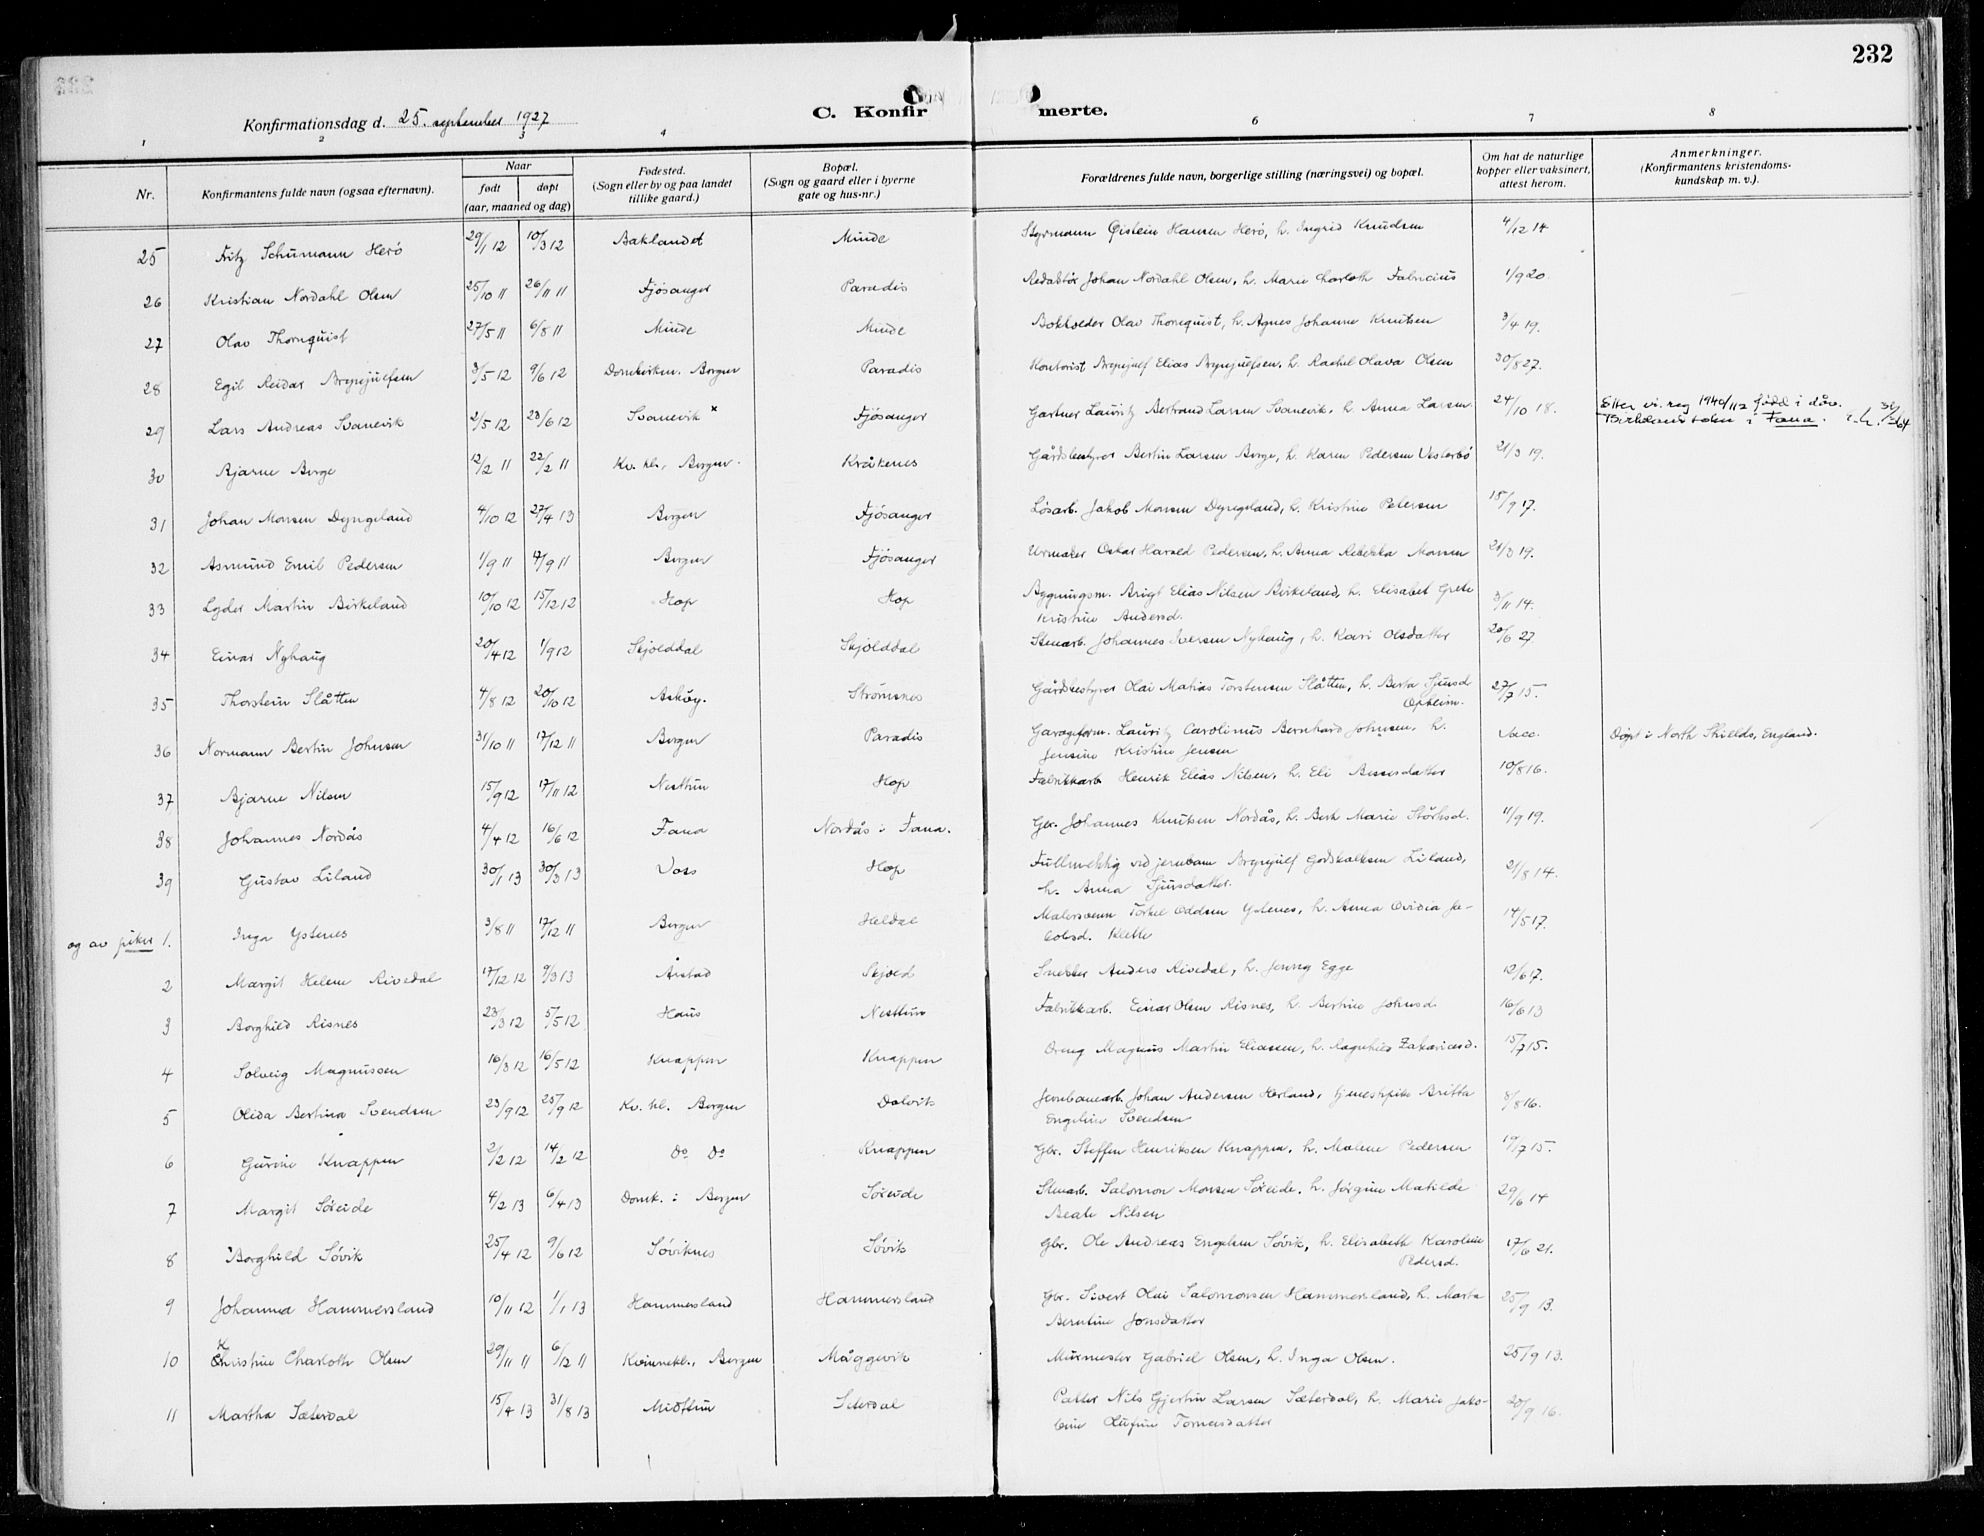 232
Konfirmationsdag d. 25. september 1927
C. Konfirmerte.
1 2 3 4 6 7 8
Nr. Konfirmantens fulde navn (ogsaa efternavn). Naar født døpt (aar, maaned og dag) Fødested. (Sogn eller by og paa landet tillike gaard.) Bopæl. (Sogn og gaard eller i byerne gate og hus-nr.) Forældrenes fulde navn, borgerlige stilling (næringsvei) og bopæl. Om hat de naturlige kopper eller vaksinert, attest herom. Anmerkninger. (Konfirmantens kristendoms-kundskap m. v.).
25 Fritz Schumann Herö 29/1 12 10/3 12 Baklandet Minde Styrmann Øistein Hansen Herö, h. Ingrid Knudsen 4/12 14
26 Kristian Nordahl Olsen 25/10 11 26/11 11 Fjösanger Paradis Redaktör Johan Nordahl Olsen, h. Marie Charloth Fabricius 1/9 20.
27 Olav Thornquist 27/5 11 6/8 11 Minde Minde Bokholder Olav Thornquist, h. Agnes Johanne Knutsen 3/4 19.
28 Egil Reidar Brynjulfsen 3/5 12 9/6 12 Domkirken. Bergen Paradis Kontorist Brynjulf Elias Brynjulfsen, h. Rachel Olava Olsen 30/8 27.
29 Lars Andreas Svanevik 2/5 12 23/6 12 Svanevik x Fjösanger Gartner Lauritz Bertrand Larsen Svanevik, h. Anna Larsen 24/10 18. Etter vi. reg 1940/112 född i dåv.
Birkeland sokn i Fana.
30 Bjarne Berge 12/2 11 22/2 11 Kv. kl., Bergen. Kråkenes Gårdsbestyrer Bertin Larsen Berge, h. Karen Pedersen Vesterbö 21/3 19.
31 Johan Monsen Dyngeland 4/10 12 27/4 13 Bergen Fjösanger Lösarb. Jakob Monsen Dyngeland, h. Kristine Petersen 18/9 17.
32 Asmund Emil Pedersen 1/9 11 17/9 11 Bergen Fjösanger Urmaker Oskar Harald Pedersen, h. Anna Rebekka Monsen 21/3 19.
33 Lyder Martin Birkeland 10/10 12 15/12 12 Hop Hop Bygningsm. Brigt Elias Nilsen Birkeland, h. Elisabet Grete
Kristine Andersd. 3/11 14.
34 Einar Nyhaug 20/4 12 1/9 12 Skjolddal Skjolddal Stenarb. Johannes Iversen Nyhaug, h. Kari Olsdatter 20/6 27
35 Thorstein Slåtten 4/8 12 20/10 12 Asköy. Strömsnes Gårdsbestyrer Olai Matias Torstensen Slåtten, h. Berta Sjursd
Opheim. 27/7 15.
36 Normann Bertin Johnsen 31/10 11 17/12 11 Bergen Paradis Garageform. Lauritz Carolinus Bernhard Johnsen, h.
Jensine Kristine Jensen Vacc. Döpt i North Shields, England.
37 Bjarne Nilsen 15/9 12 17/11 12 Nesttun Hop Fabrikkarb. Henrik Elias Nilsen, h. Eli Bessesdatter 10/8 16.
38 Johannes Nordås 4/4 12 16/6 12 Fana Nordås i Fana. Gbr. Johannes Knutsen Nordås, h. Berte Marie Störksd. 11/9 19.
39 Gustav Liland 30/1 13 30/3 13 Voss Hop Fullmektig ved jernbanen Brynjulf Godskalksen Liland,
h. Anna Sjursdatter. 21/8 14.
og av piker 1. Inga Ystenes 3/8 11 17/12 11 Bergen Heldal Malersvenn Torkel Oddsen Ystenes, h. Anna Ovidia Ja-
cobsd. Klette 14/5 17.
2 Margit Helene Rivedal 17/12 12 9/3 13 Årstad Skjold Snekker Anders Rivedal, h. Jenny Egge 12/6 17.
3 Borghild Risnes 23/3 12 5/5 12 Haus Nesttun Fabrikkarb. Einar Olsen Risnes, h. Bertine Johnsd. 16/6 13
4 Solveig Magnussen 16/3 12 16/5 12 Knappen Knappen Dreng Magnus Martin Eliassen, h. Ragnhild Zakariasd. 15/7 15.
5 Olida Bertina Svendsen 23/9 12 25/9 12 Kv. kl. Bergen Dolvik Jernbanearb. Johan Andersen Herland, tjenestpike Britta
Engeline Svendsen 8/8 16.
6 Gurine Knappen 2/2 12 14/2 12 Do Do Knappen Gbr. Steffen Henriksen Knappen, h. Malene Pedersen 19/7 15.
7 Margit Söreide 4/2 13 6/4 13 Domk. i Bergen Söreide Stenarb. Salomon Monsen Söreide, h. Jörgine Matilde
Beate Nilsen 29/6 14
8 Borghild Sövik 25/4 12 9/6 12 Söviknes Sövik Gbr. Ole Andreas Engelsen Sövik, h. Elisabeth Karoline
Pedersd. 17/6 21.
9 Johanna Hammersland 10/11 12 1/1 13 Hammersland Hammersland Gbr. Sivert Olai Salomonsen Hammersland, h. Marta
Berntine Jonsdatter 25/9 13.
10 Christine Charloth Olsen 29/11 11 6/12 11 Kvinnekl., Bergen Måggevik Murmester Gabriel Olsen, h. Inga Olsen. 25/9 13.
11 Martha Sæterdal 15/4 13 31/8 13 Midttun Seterdal Patter Nils Gjertin Larsen Sæterdal, h. Marie Jako-
bine Tormodsdatter 20/9 16.